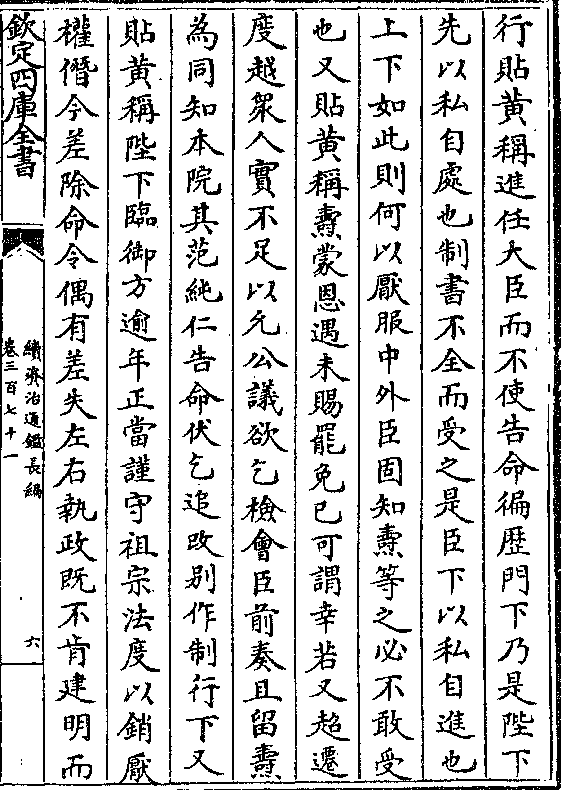 行貼黄稱進任大臣而不使告命徧歴門下乃是陛下
先以私自處也制書不全而受之是臣下以私自進也
上下如此則何以厭服中外臣固知燾等之必不敢受
也又貼黄稱燾蒙恩遇未賜罷免已可謂幸若又超遷
度越衆人實不足以允公議欲乞檢會臣前奏且留燾
為同知本院其范純仁告命伏乞追改别作制行下又
貼黄稱陛下臨御方逾年正當謹守祖宗法度以銷厭
權僭今差除命令偶有差失左右執政既不肯建明而
欽定四庫全書
續資治通鑑長編
卷三百七十一
六